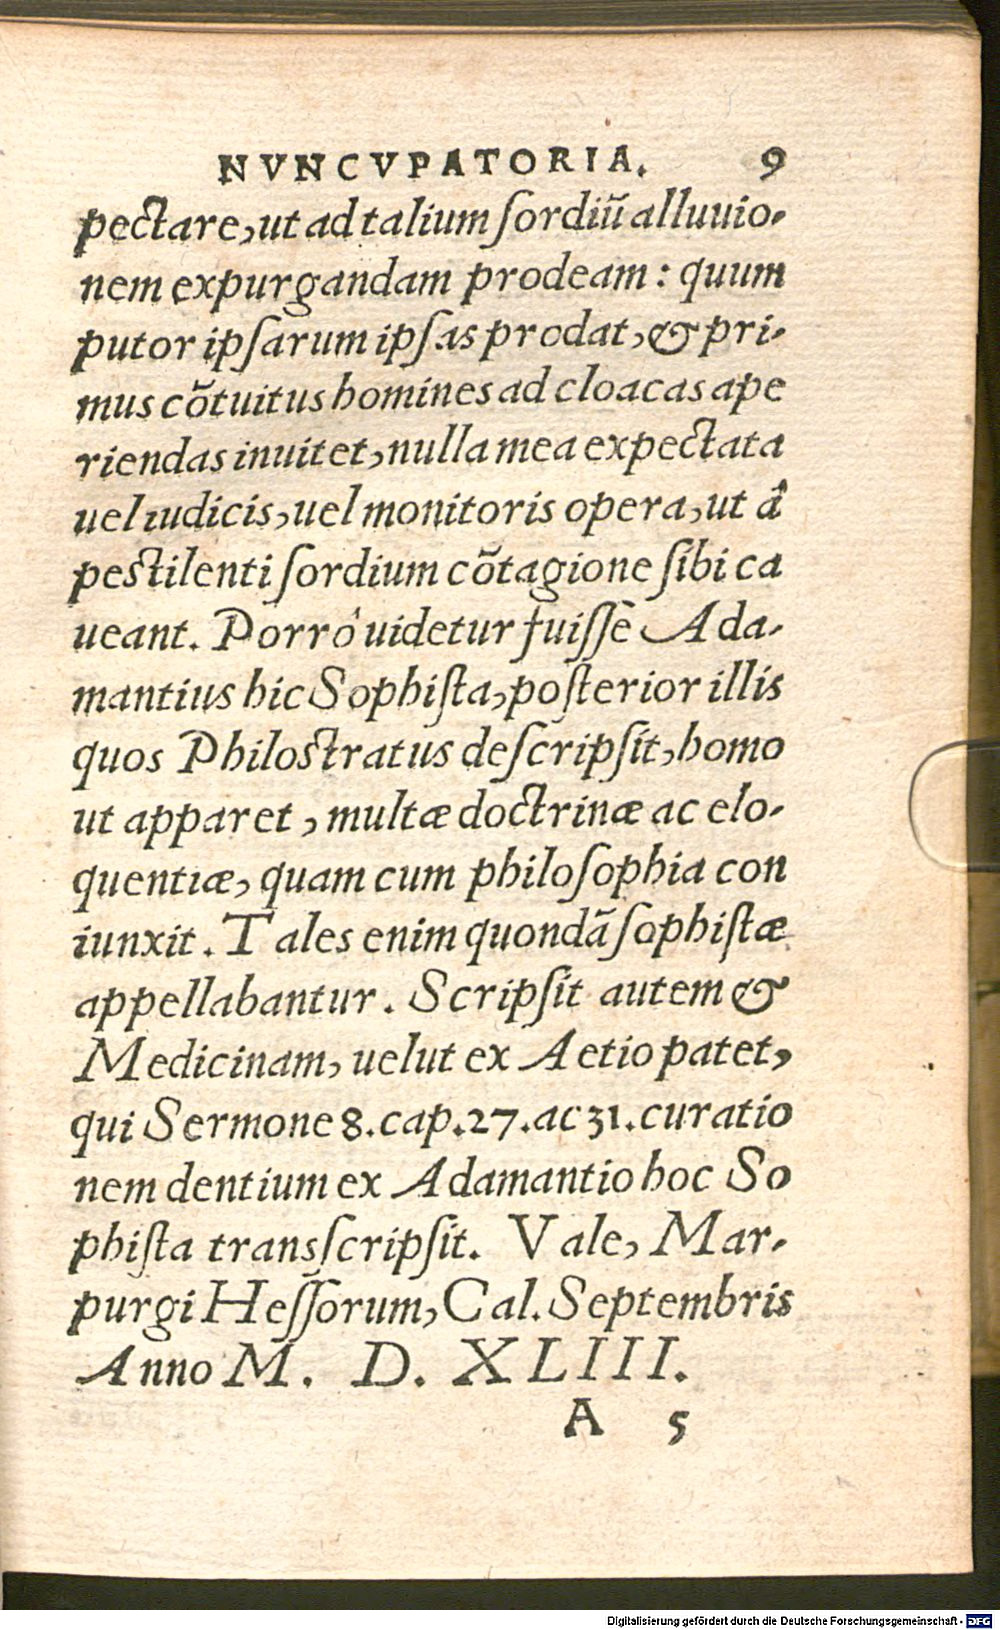 NVNCVPATORIA. 9
pectare, ut ad talium ſordiũ alluuio-
nem expurgandam prodeam: quum
putor ipſarum ipſas prodat, & pri-
mus cõtuitus homines ad cloacas ape
riendas inuitet, nulla mea expectata
uel iudicis, uel monitoris opera, ut â
peſtilenti ſordium cõtagione ſibi ca
ueant. Porrò uidetur fuiſſe Ada-
mantius hic Sophiſta, poſterior illis
quos Philoſtratus deſcripſit, homo
ut apparet, multæ doctrinæ ac elo-
quentiæ, quam cum philoſophia con
iunxit. Tales enim quondã ſophiſtæ
appellabantur. Scripſit autem &
Medicinam, uelut ex Aetio patet,
qui Sermone 8. cap. 27. ac 31. curatio
nem dentium ex Adamantio hoc So
phiſta transſcripſit. Vale, Mar-
purgi Heſſorum, Cal. Septembris
Anno M. D. XLIII.
A 5
Digitalisierung gefördert durch die Deutsche Forschungsgemeinschaft - DFG